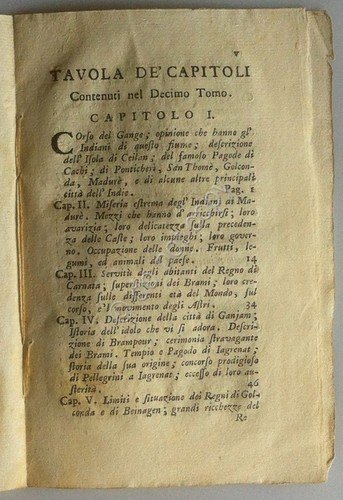 v
TAVOLA DE' CAPITOLI
Contenuti nel Decimo Tomo.
CAPITOLO I.
COrso del Gange; opinione che hanno gl'
Indiani di questo fiume; descrizione
dell' Isola di Ceilan; del famoso Pagode di
Cachi; di Ponticherì, San Thomè, Golcon-
da, Madurè, e di alcune altre principali
città dell' Indie. Pag. 1
Cap. II. Miseria estrema degl' Indiani di Ma-
durè. Mezzi che hanno d'arricchirsi; loro
avarizia; loro delicatezza sulla preceden-
za delle Caste; loro impieghi; loro gover-
no. Occupazione delle donne. Frutti, le-
gumi, ed animali del paese. 14
Cap. III. Servitù degli abitanti del Regno di
Carnata; superstizioni dei Brami; loro cre-
denza sulle differenti età del Mondo, sul
corso, e'l movimento degli Astri. 34
Cap. IV. Descrizione della città di Ganjam;
Istoria dell'idolo che vi si adora. Descri-
zione di Brampour; cerimonia stravagante
dei Brami. Tempio e Pagodo di Iagrenat;
storia della sua origine; concorso prodigioso
di Pellegrini a Iagrenat; eccesso di loro au-
sterità. 46
Cap. V. Limiti e situazione dei Regni di Gol-
conda e di Beinagen; grandi ricchezze del
Re